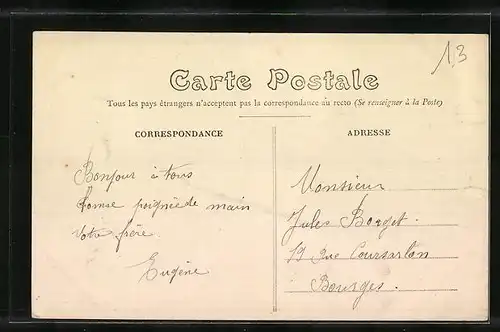 13
Carte Postale
Tous les pays étrangers n'acceptent pas la correspondance au recto (Se renseigner à la Poste)
CORRESPONDANCE
Bonjour à tous
bonne poignée de main
Votre frère
Eugène
ADRESSE
Monsieur
Jules Borget.
19 Rue Coursarlon
Bourges.